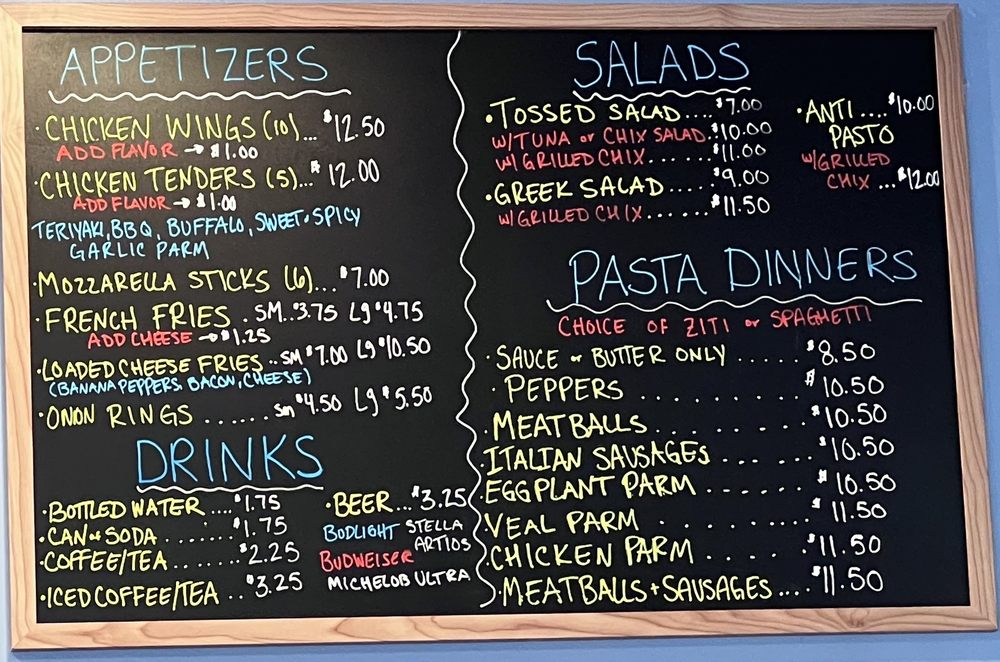 APPETIZERS
• CHICKEN WINGS (10)... $12.50
ADD FLAVOR → $1.00
• CHICKEN TENDERS (5)...$ 12.00
ADD FLAVOR → $1.00
TERIYAKI, BBQ, BUFFALO, SWEET + SPICY
GARLIC PARM
• MOZZARELLA STICKS (6)... $7.00
• FRENCH FRIES . SM..3.75 Lg $4.75
ADD CHEESE → $1.25
• LOADED CHEESE FRIES .. SM $7.00 Lg $10.50
(BANANA PEPPERS, BACON, CHEESE)
• ONON RINGS ...... Sm $4.50 Lg $5.50
DRINKS
• BOTTLED WATER .... $1.75
• CAN of SODA ....... $1.75
• COFFEE/TEA ....... $2.25
• ICED COFFEE/TEA .. $3.25
• BEER... $3.25
BUDLIGHT STELLA
ARTIOS
BUDWEISER
MICHELOB ULTRA
SALADS
• TOSSED SALAD.... $7.00
W/TUNA or CHIX SALAD. $10.00
W/ GRILLED CHIX...... $11.00
• GREEK SALAD ..... $9.00
W/ GRILLED CHIX...... $11.50
• ANTI .... $10.00
PASTO
W/ GRILLED
CHIX ... $12.00
PASTA DINNERS
CHOICE OF ZITI or SPAGHETTI
• SAUCE or BUTTER ONLY ..... $8.50
• PEPPERS ......... $10.50
• MEATBALLS ........ $10.50
• ITALIAN SAUSAGES .... $10.50
• EGGPLANT PARM ...... $10.50
• VEAL PARM ......... $11.50
• CHICKEN PARM ..... $11.50
• MEATBALLS + SAUSAGES .... $11.50